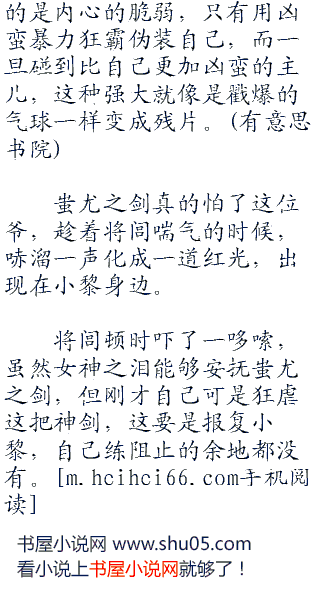 的是内心的脆弱，只有用凶
蛮暴力狂霸伪装自己，而一
旦碰到比自己更加凶蛮的主
儿，这种强大就像是戳爆的
气球一样变成残片。(有意思
书院)
蚩尤之剑真的怕了这位
爷，趁着将闾喘气的时候，
哧溜一声化成一道红光，出
现在小黎身边。
将闾顿时吓了一哆嗦，
虽然女神之泪能够安抚蚩尤
之剑，但刚才自己可是狂虐
这把神剑，这要是报复小
黎，自己练阻止的余地都没
有。[m.hcihci66.com手机阅
读]
书屋小说网 www.shu05.com
看小说上书屋小说网就够了！